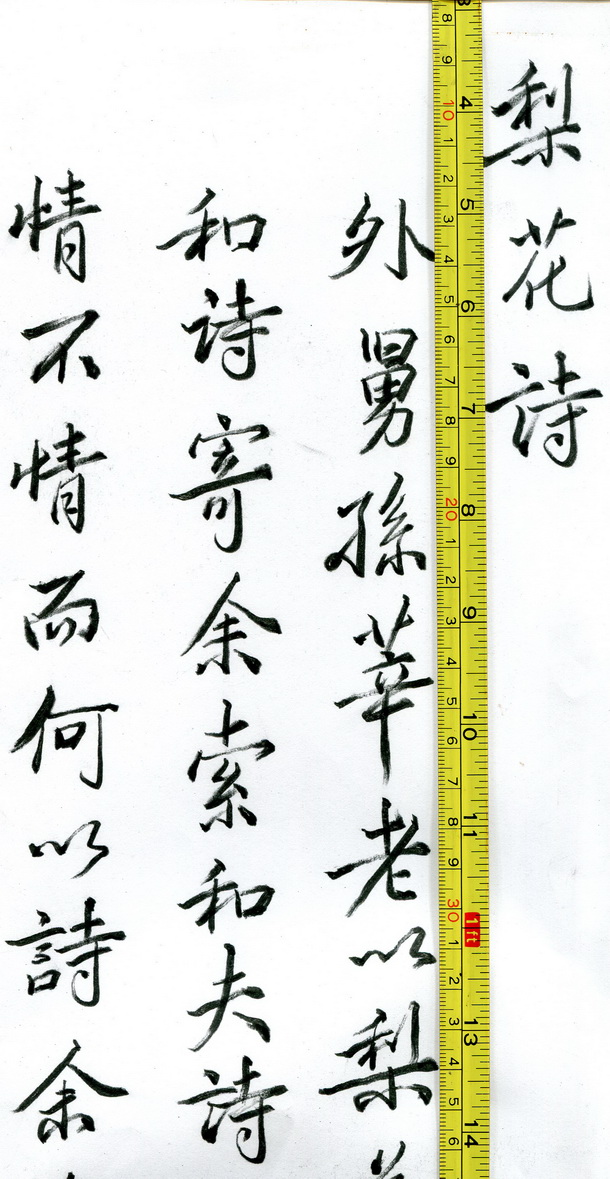 梨花詩
3 4 5 6 7 8 9 10 11 1ft 13 14
8 9 10 1 2 3 4 5 6 7 8 9 20 1 2 3 4 5 6 7 8 9 30 1 2 3 4 5 6
外舅孫莘老以梨
和詩寄余索和夫詩
情不情而何以詩余